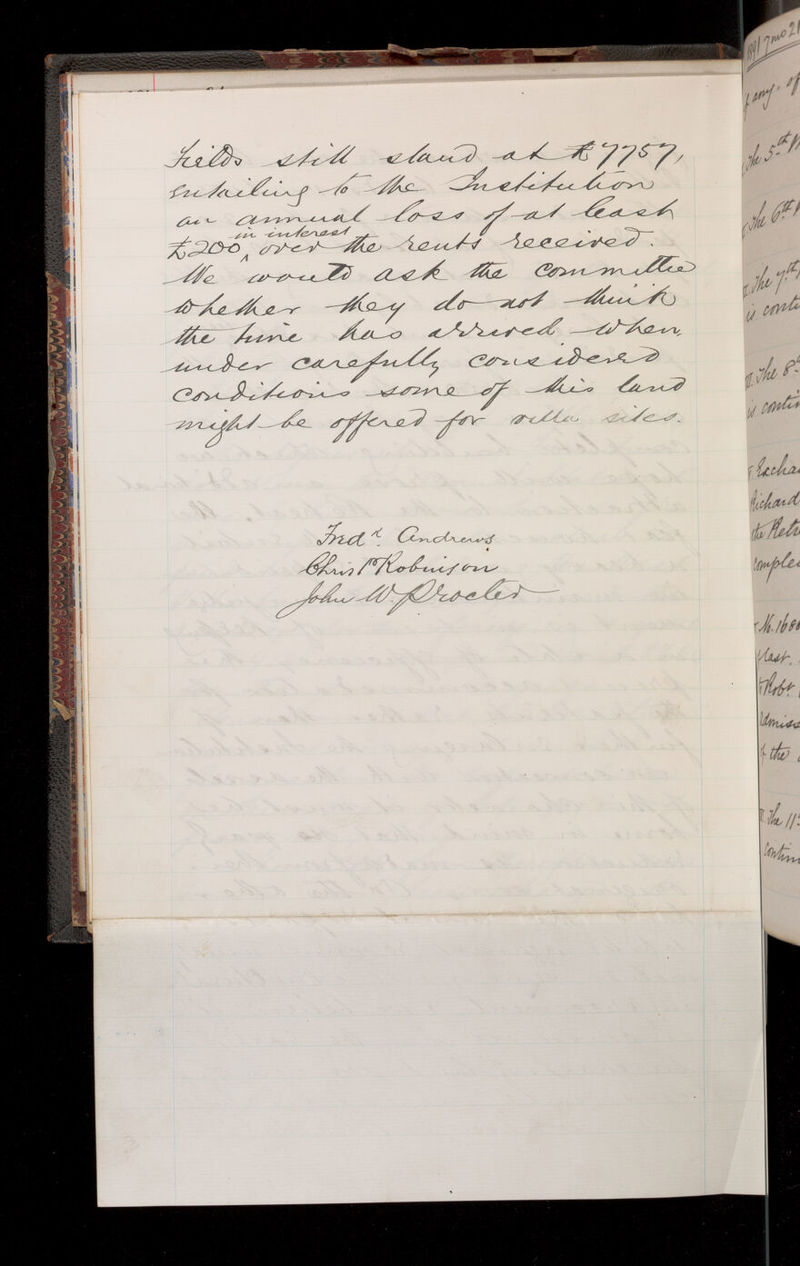 Fields still stand at £7757,
entailing to the Institution
an annual loss of at least
in interest
£200 ^ over the rents received.
We would ask the Committee
whether they do not think
the time has arrived when,
under carefully considered
conditions some of this land
might be offered for villa sites.
Fredk. Andrews
Christr Robinson
John W. Procter
1891 7 mo 21
if any. of
The 5th
The 6th
The 7th
is conti
The 8th
is contin
Excha
Richard
the Retr
comple
No. 168
last.
Robt.
admiss
of the
The 11
contin